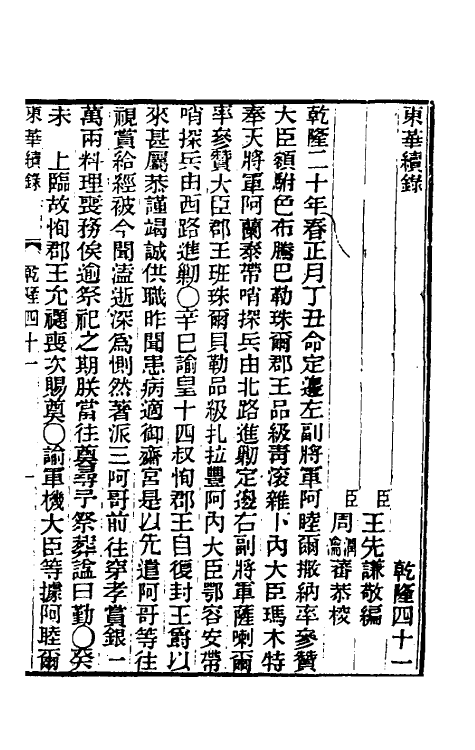 東華續錄
乾隆四十一
臣王先謙敬編
臣周潤蕃周瀹蕃恭校
乾隆二十年春正月丁丑命定邊左副將軍阿睦爾撒納率參贊
大臣額駙色布騰巴勒珠爾郡王品級靑滾雜卜內大臣瑪木特
奉天將軍阿蘭泰帶哨探兵由北路進勦定邊右副將軍薩喇爾
率參贊大臣郡王班珠爾貝勒品級扎拉豐阿內大臣鄂容安帶
哨探兵由西路進勦○辛巳諭皇十四叔恂郡王自復封王爵以
來甚屬恭謹竭誠供職昨聞患病適御齋宮是以先遣阿哥等往
視賞給經被今聞溘逝深為惻然著派三阿哥前往穿孝賞銀一
萬兩料理喪務俟逾祭祀之期朕當往奠尋予祭葬諡曰勤○癸
未 上臨故恂郡王允禵喪次賜奠○諭軍機大臣等據阿睦爾
東華續錄 乾隆四十一 一